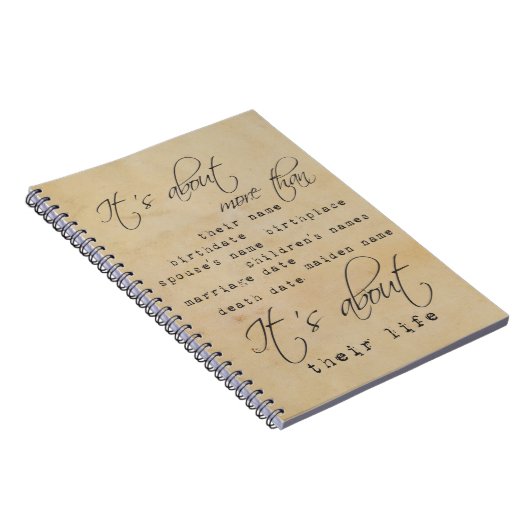 It's about
more than
their name
birthdate birthplace
spouse's name
children's names
marriage date
death date maiden name
It's about
their life